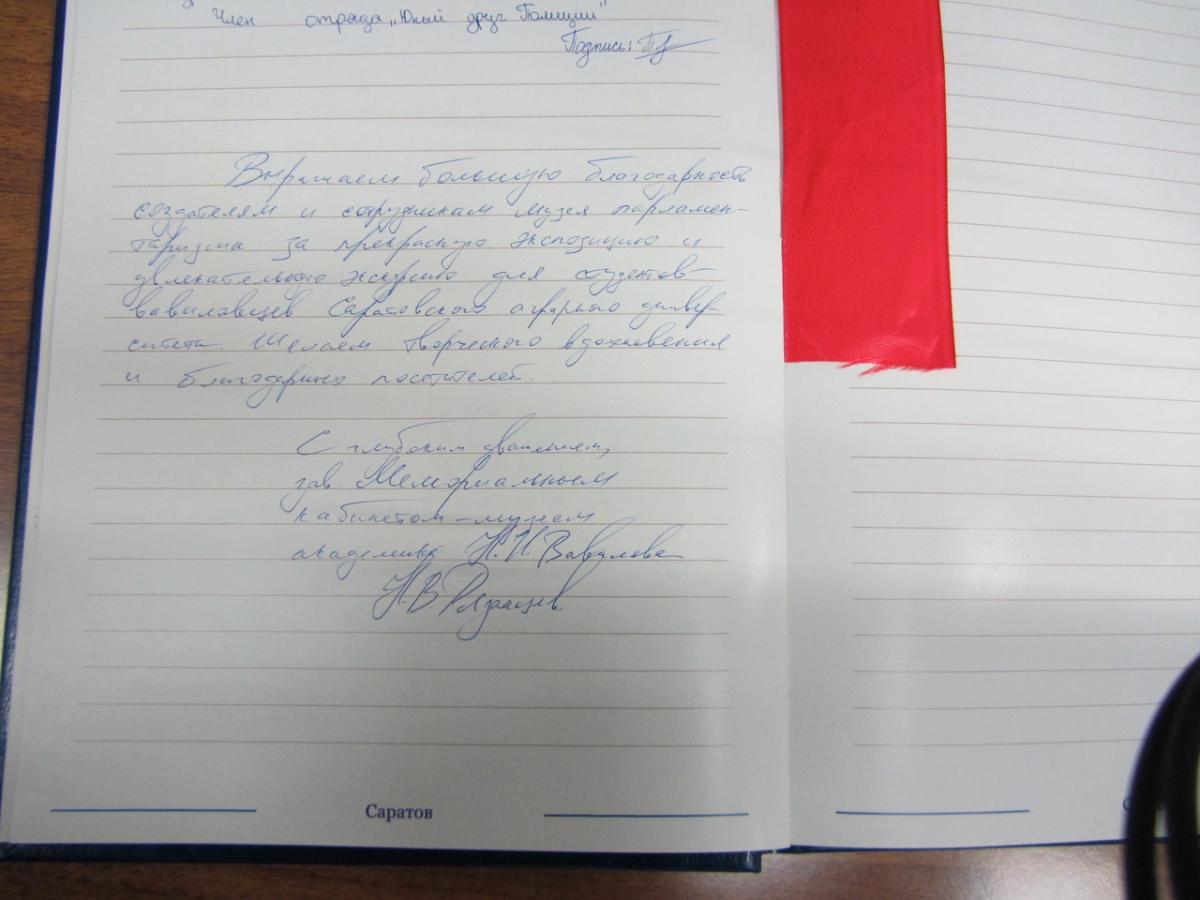 Член отряда „Юный друг Полиции"
Подпись:
Выражаем большую благодарность
создателям и сотрудникам музея парламен-
таризма за прекрасную экспозицию и
увлекательную экскурсию для студентов-
вавиловцев Саратовского аграрного универ-
ситета. Желаем творческого вдохновения
и благодарных посетителей.
С глубоким уважением,
зав. Мемориальным
кабинетом-музеем
академика Н.И. Вавилова
Н.В. Рязанцев
Саратов